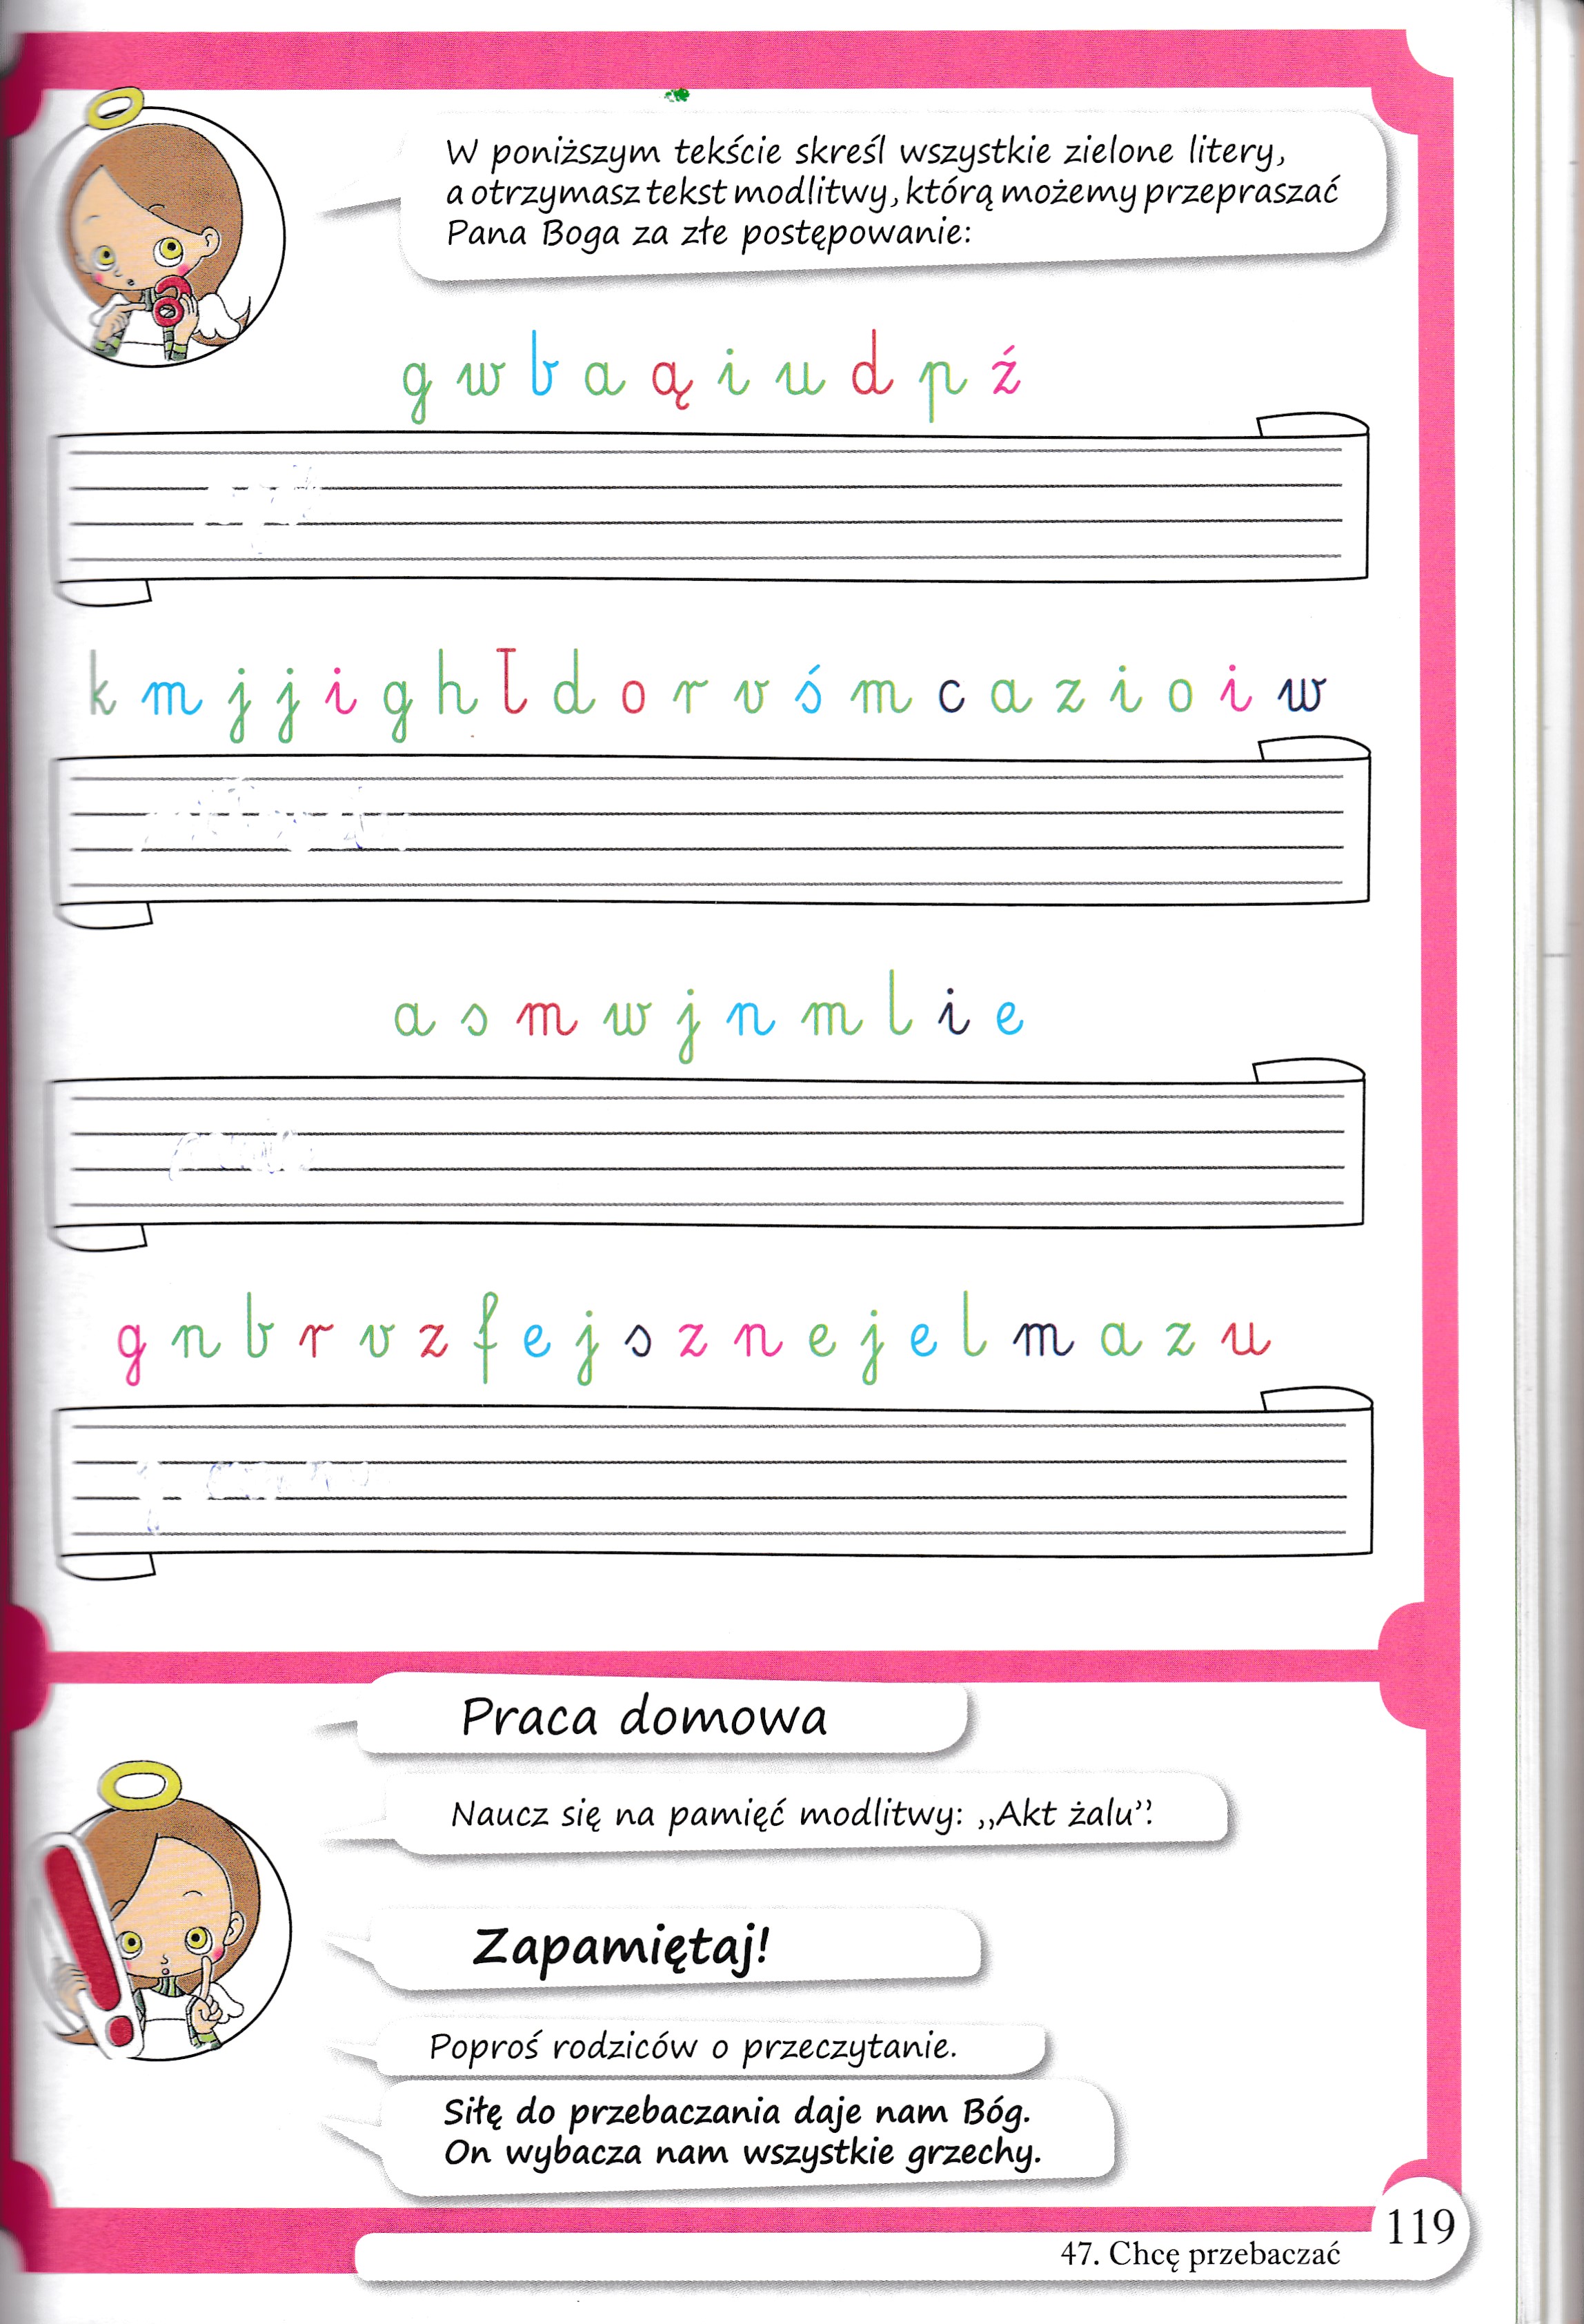 W poniższym tekście skreśl wszystkie zielone litery,
a otrzymasz tekst modlitwy, którą możemy przepraszać
Pana Boga za złe postępowanie:
g w b a ą i u d p ź
k m j j i g h ł d o r v ś m c a z i o i w
a s m w j n m l i e
g n b r v z f e j s z n e j e l m a z u
Praca domowa
Naucz się na pamięć modlitwy: „Akt żalu”.
Zapamiętaj!
Poproś rodziców o przeczytanie.
Siłę do przebaczania daje nam Bóg.
On wybacza nam wszystkie grzechy.
119
47. Chcę przebaczać